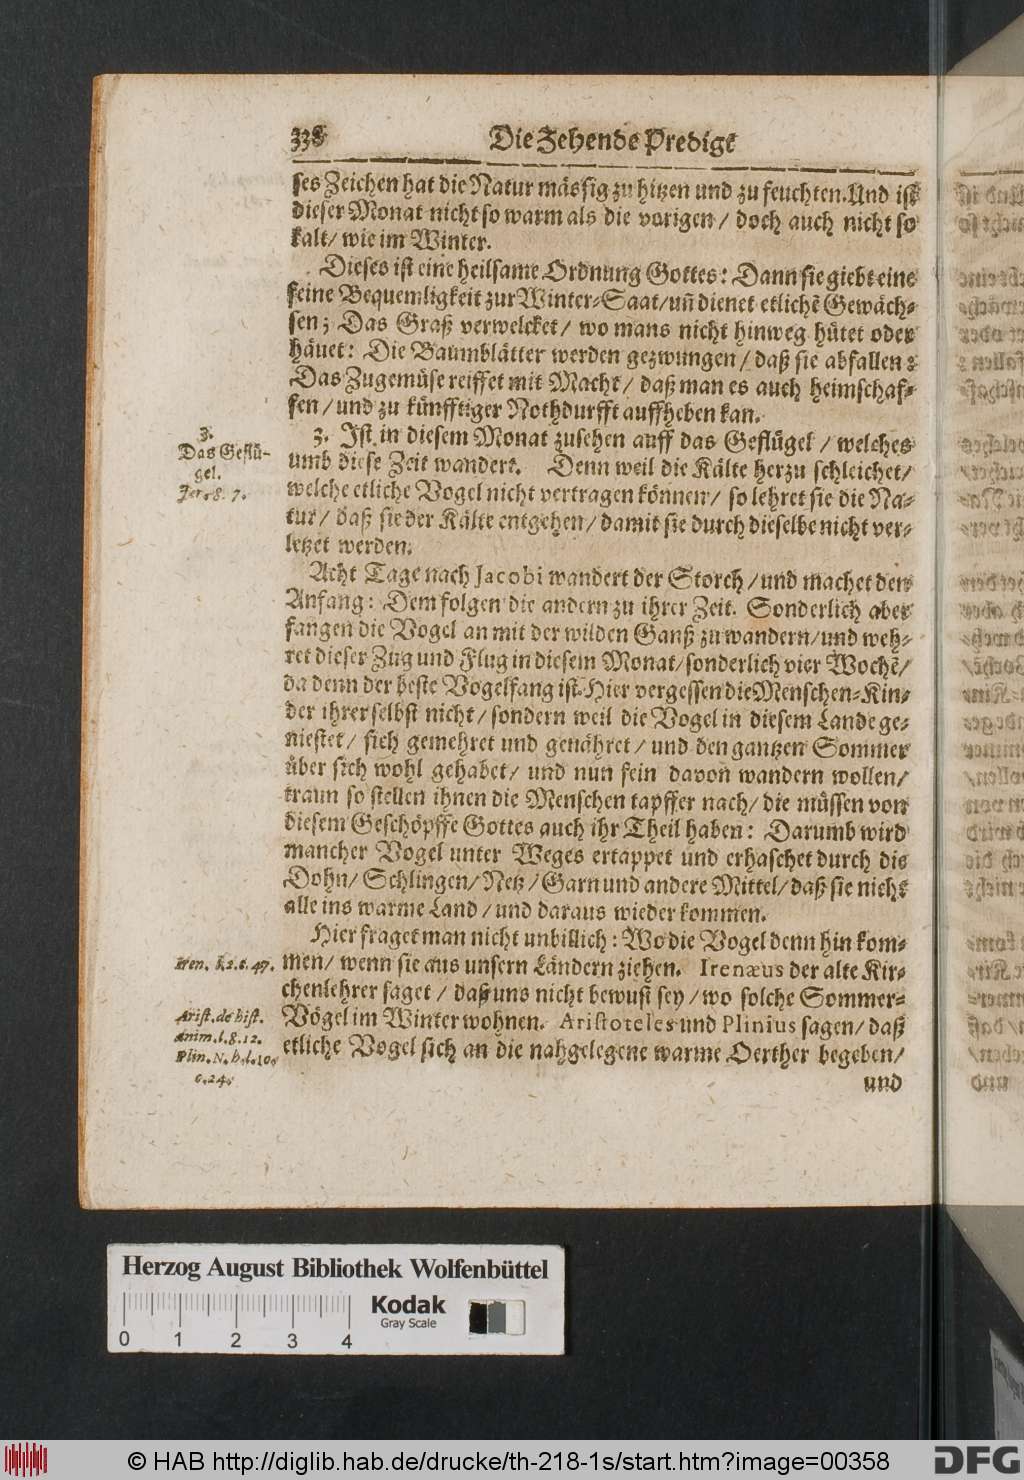 338 Die Zehende Predigt
ses Zeichen hat die Natur mässig zu hitzen und zu feuchten. Und ist
dieser Monat nicht so warm als die vorigen / doch auch nicht so
kalt / wie im Winter.
Dieses ist eine heilsame Ordnung Gottes: Dann sie giebt eine
feine Bequemligkeit zur Winter-Saat / uñ dienet etlichẽ Gewäch-
sen; Das Graß verwelcket / wo mans nicht hinweg hütet oder
häuet: Die Baumblätter werden gezwungen / daß sie abfallen:
Das Zugemüse reiffet mit Macht / daß man es auch heimschaf-
fen / und zu künfftiger Nothdurfft auffheben kan.
3.
Das Geflü-
gel.
Jer. 8. 7.
3. Ist in diesem Monat zusehen auff das Geflügel / welches
umb diese Zeit wandert. Denn weil die Kälte herzu schleichet /
welche etliche Vogel nicht vertragen können / so lehret sie die Na-
tur / daß sie der Kälte entgehen / damit sie durch dieselbe nicht ver-
letzet werden.
Acht Tage nach Jacobi wandert der Storch / und machet den
Anfang: Dem folgen die andern zu ihrer Zeit. Sonderlich aber
fangen die Vogel an mit der wilden Ganß zu wandern / und weh-
ret dieser Zug und Flug in diesem Monat / sonderlich vier Wochẽ /
da denn der beste Vogelfang ist. Hier vergessen die Menschen-Kin-
der ihrer selbst nicht / sondern weil die Vogel in diesem Lande ge-
niestet / sich gemehret und genähret / und den gantzen Sommer
über sich wohl gehabet / und nun fein davon wandern wollen /
traun so stellen ihnen die Menschen tapffer nach / die müssen von
diesem Geschöpffe Gottes auch ihr Theil haben: Darumb wird
mancher Vogel unter Weges ertappet und erhaschet durch die
Dohn / Schlingen / Netz / Garn und andere Mittel / daß sie nicht
alle ins warme Land / und daraus wieder kommen.
Hier fraget man nicht unbillich: Wo die Vogel denn hin kom-
men / wenn sie aus unsern Ländern ziehen. Irenæus der alte Kir-
chenlehrer saget / daß uns nicht bewust sey / wo solche Sommer-
Vögel im Winter wohnen. Aristoteles und Plinius sagen / daß
etliche Vogel sich an die nahgelegene warme Oerther begeben /
und
Iren. l. 2. c. 47.
Arist. de hist.
Anim. l. 8. 12.
Plin. N. h. l. 10.
c. 24.
Herzog August Bibliothek Wolfenbüttel
Kodak
Gray Scale
0 1 2 3 4
© HAB http://diglib.hab.de/drucke/th-218-1s/start.htm?image=00358
DFG